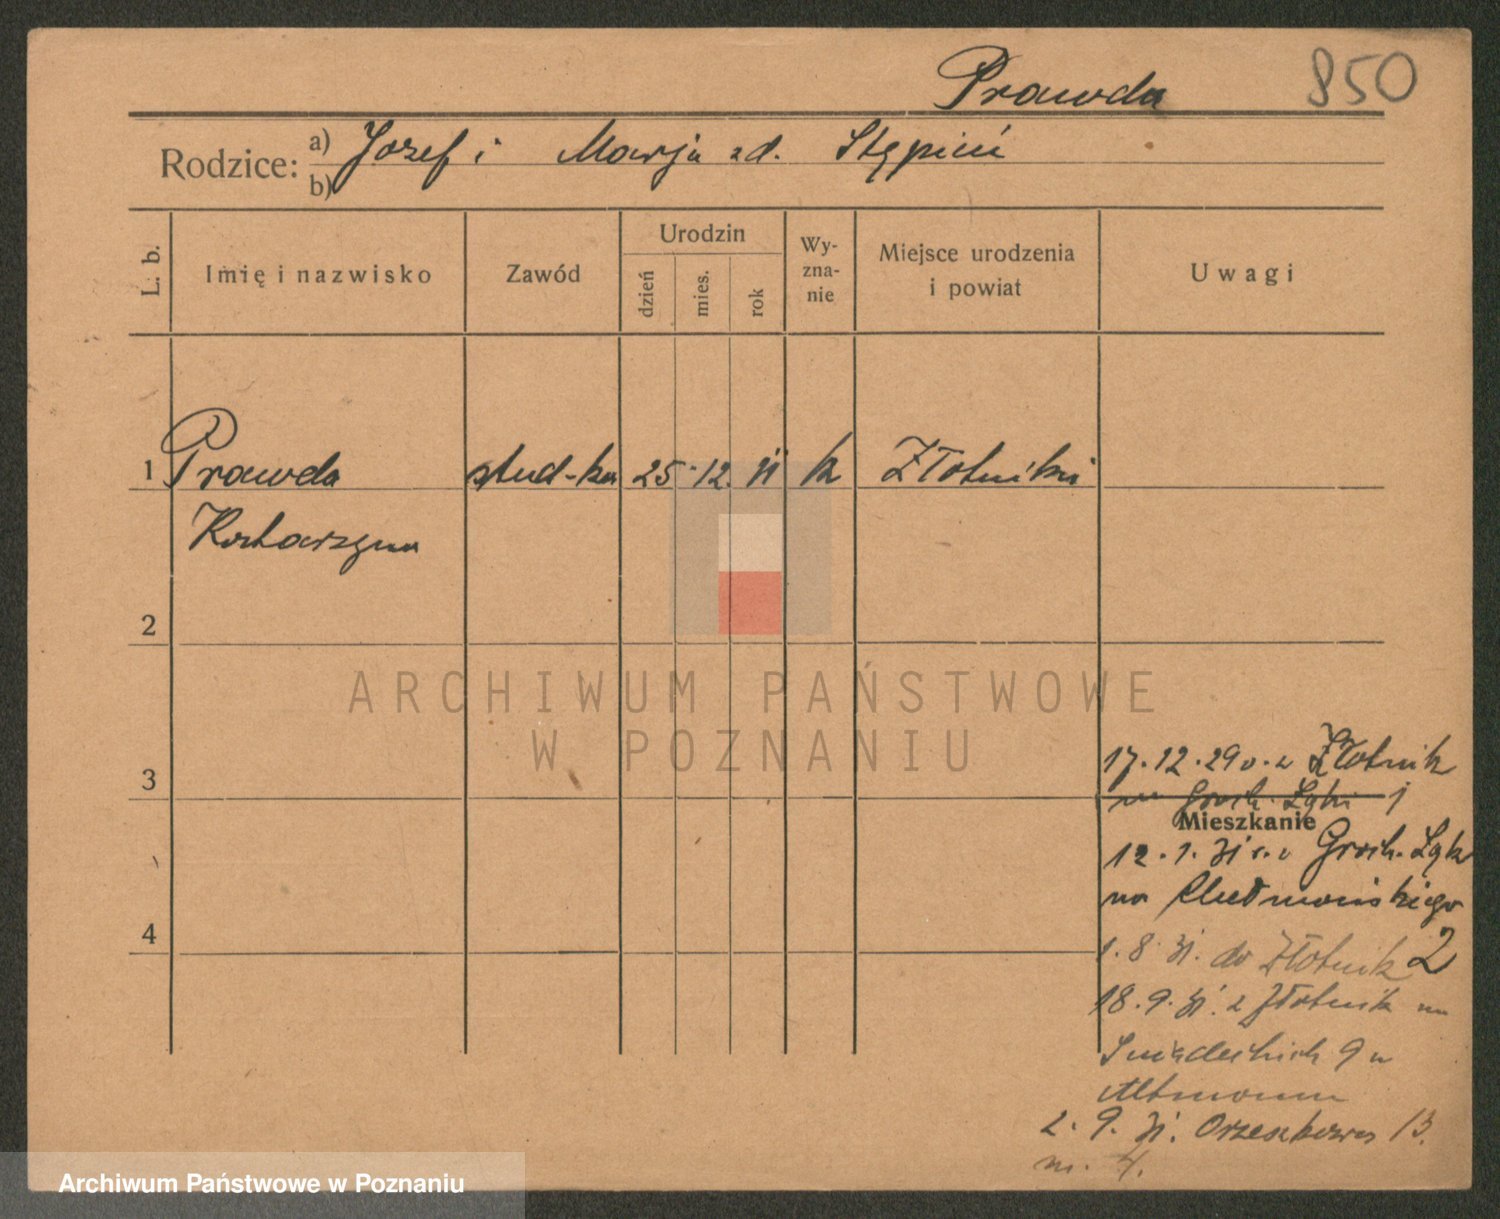 Prawda 850
Rodzice: a) Józef i Marja zd. Stępień
b)
L. b. Imię i nazwisko Zawód Urodzin Wyznanie Miejsce urodzenia i powiat Uwagi
dzień mies. rok
1 Prawda stud-ka 25 12. k Złotniki
Katarzyna
2
ARCHIWUM PAŃSTWOWE
W POZNANIU
3
17.12.29 z Złotnik
na Groch. Łąki 1
Mieszkanie
12.1.31 z Groch. Łąk
na Chełmońskiego
4
2
1.8.31. do Złotnik
18.9.31. z Złotnik na
Śniadeckich 9 u
2.9.31. Orzeszkowej 13.
m. 4.
Archiwum Państwowe w Poznaniu